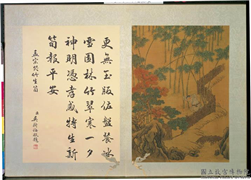 更無玉版佐盤餐
雪園林竹翠寒一夕
神明憑孝感特生新
筍報平安
孟宗哭竹生筍
國立故宮博物院